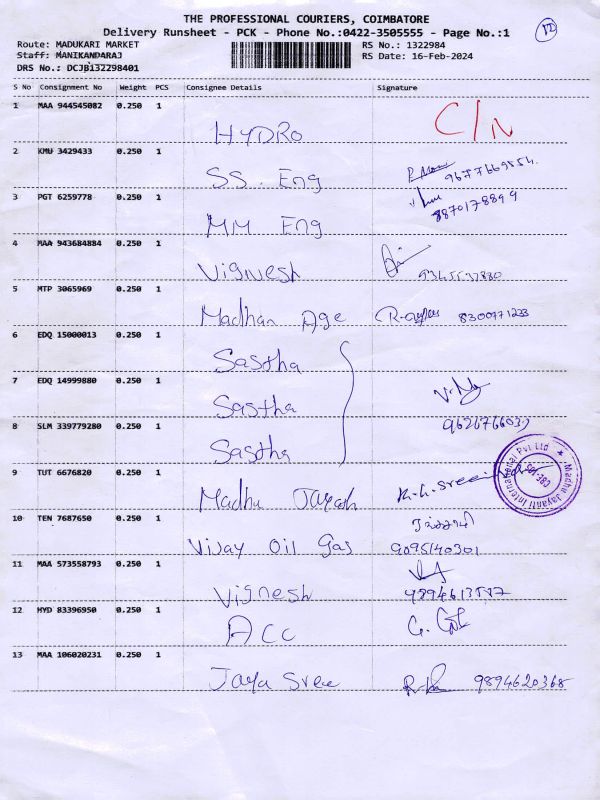 THE PROFESSIONAL COURIERS, COIMBATORE
Delivery Runsheet - PCK - Phone No.:0422-3505555 - Page No.:1
Route: MADUKARI MARKET
Staff: MANIKANDARAJ
DRS No.: DCJB132298401
RS No.: 1322984
RS Date: 16-Feb-2024
S No Consignment No Weight PCS Consignee Details Signature
1 MAA 944545082 0.250 1 HYDRO C/N
2 KMU 3429433 0.250 1 SS. Eng
3 PGT 6259778 0.250 1 MM Eng
4 MAA 943684884 0.250 1 Vignesh
5 MTP 3065969 0.250 1 Madhan Age 8300771233
6 EDQ 15000013 0.250 1 Sastha
7 EDQ 14999880 0.250 1 Sastha
8 SLM 339779280 0.250 1 Sastha
9 TUT 6676820 0.250 1 Madhu Jayash
Madhu Jayanti International Pvt Ltd
10 TEN 7687650 0.250 1 Vijay Oil Gas 9095140301
11 MAA 573558793 0.250 1 Vignesh
12 HYD 83396950 0.250 1 ACC
13 MAA 106020231 0.250 1 Jaya Sree 9894620368